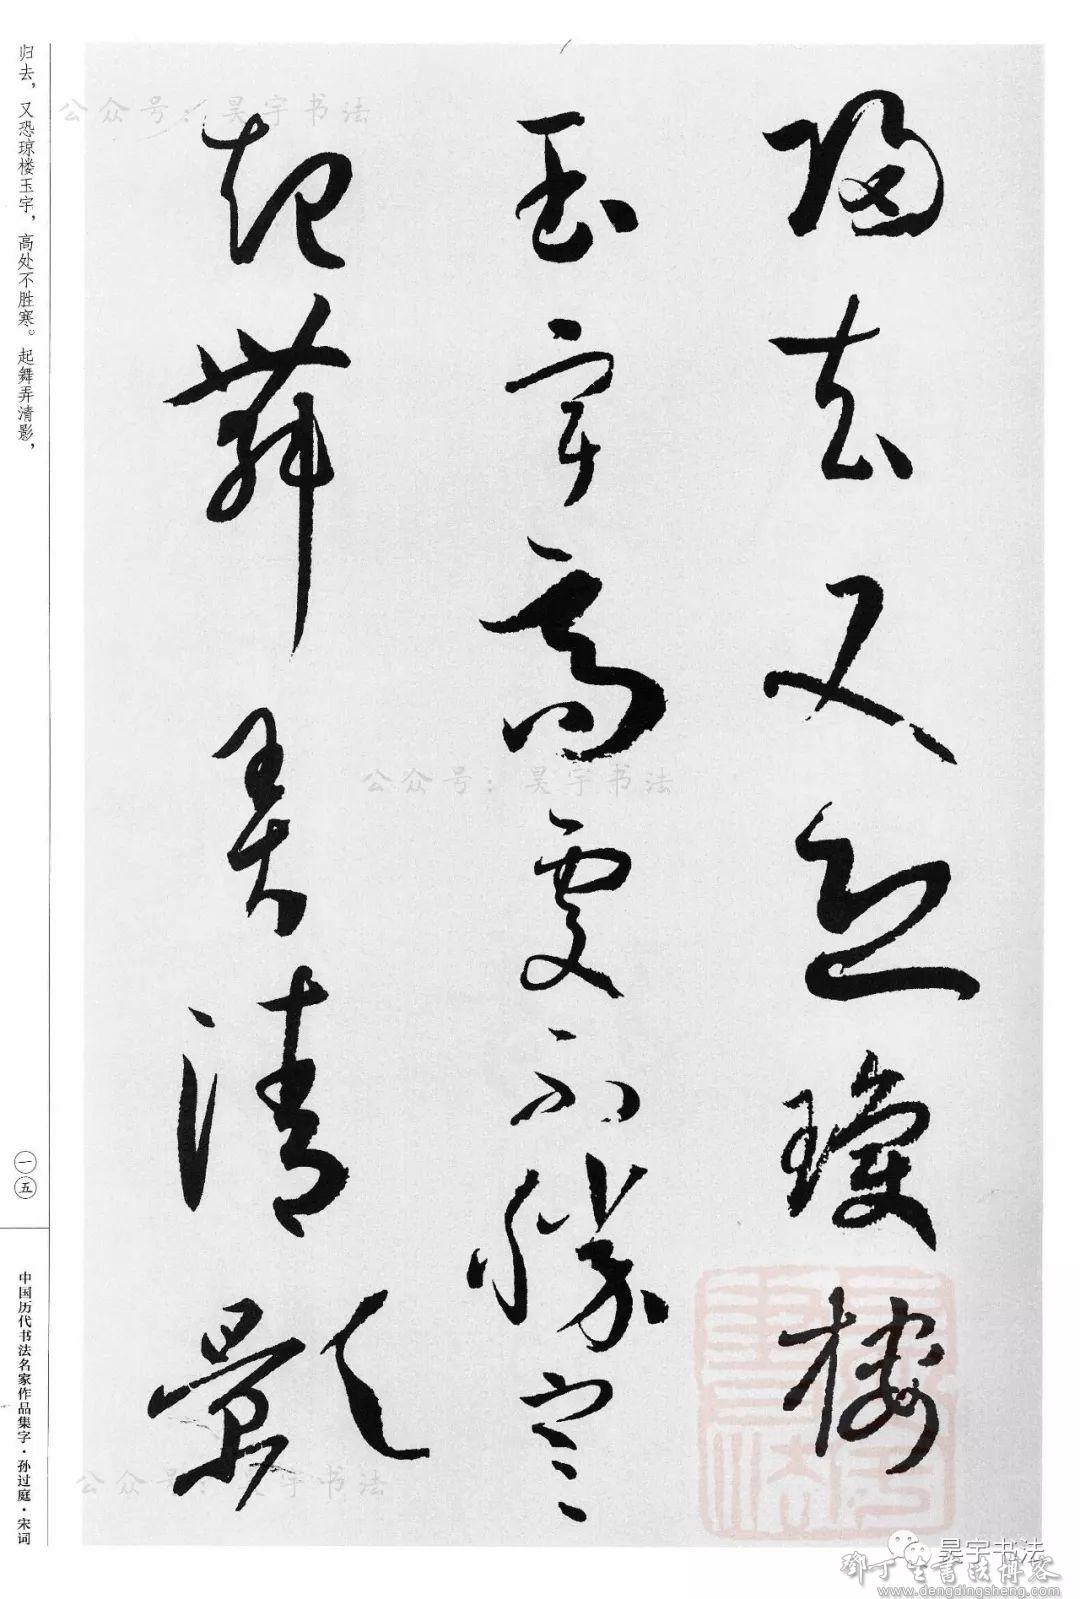 歸去又恐瓊樓
玉宇高處不勝寒
起舞弄清影
归去，又恐琼楼玉宇，高处不胜寒。起舞弄清影，
一五
中国历代书法名家作品集字·孙过庭·宋词
公众号：昊宇书法
公众号：昊宇书法
公众号：昊宇书法
昊宇书法
鄧丁生書法博客
www.dengdingsheng.com